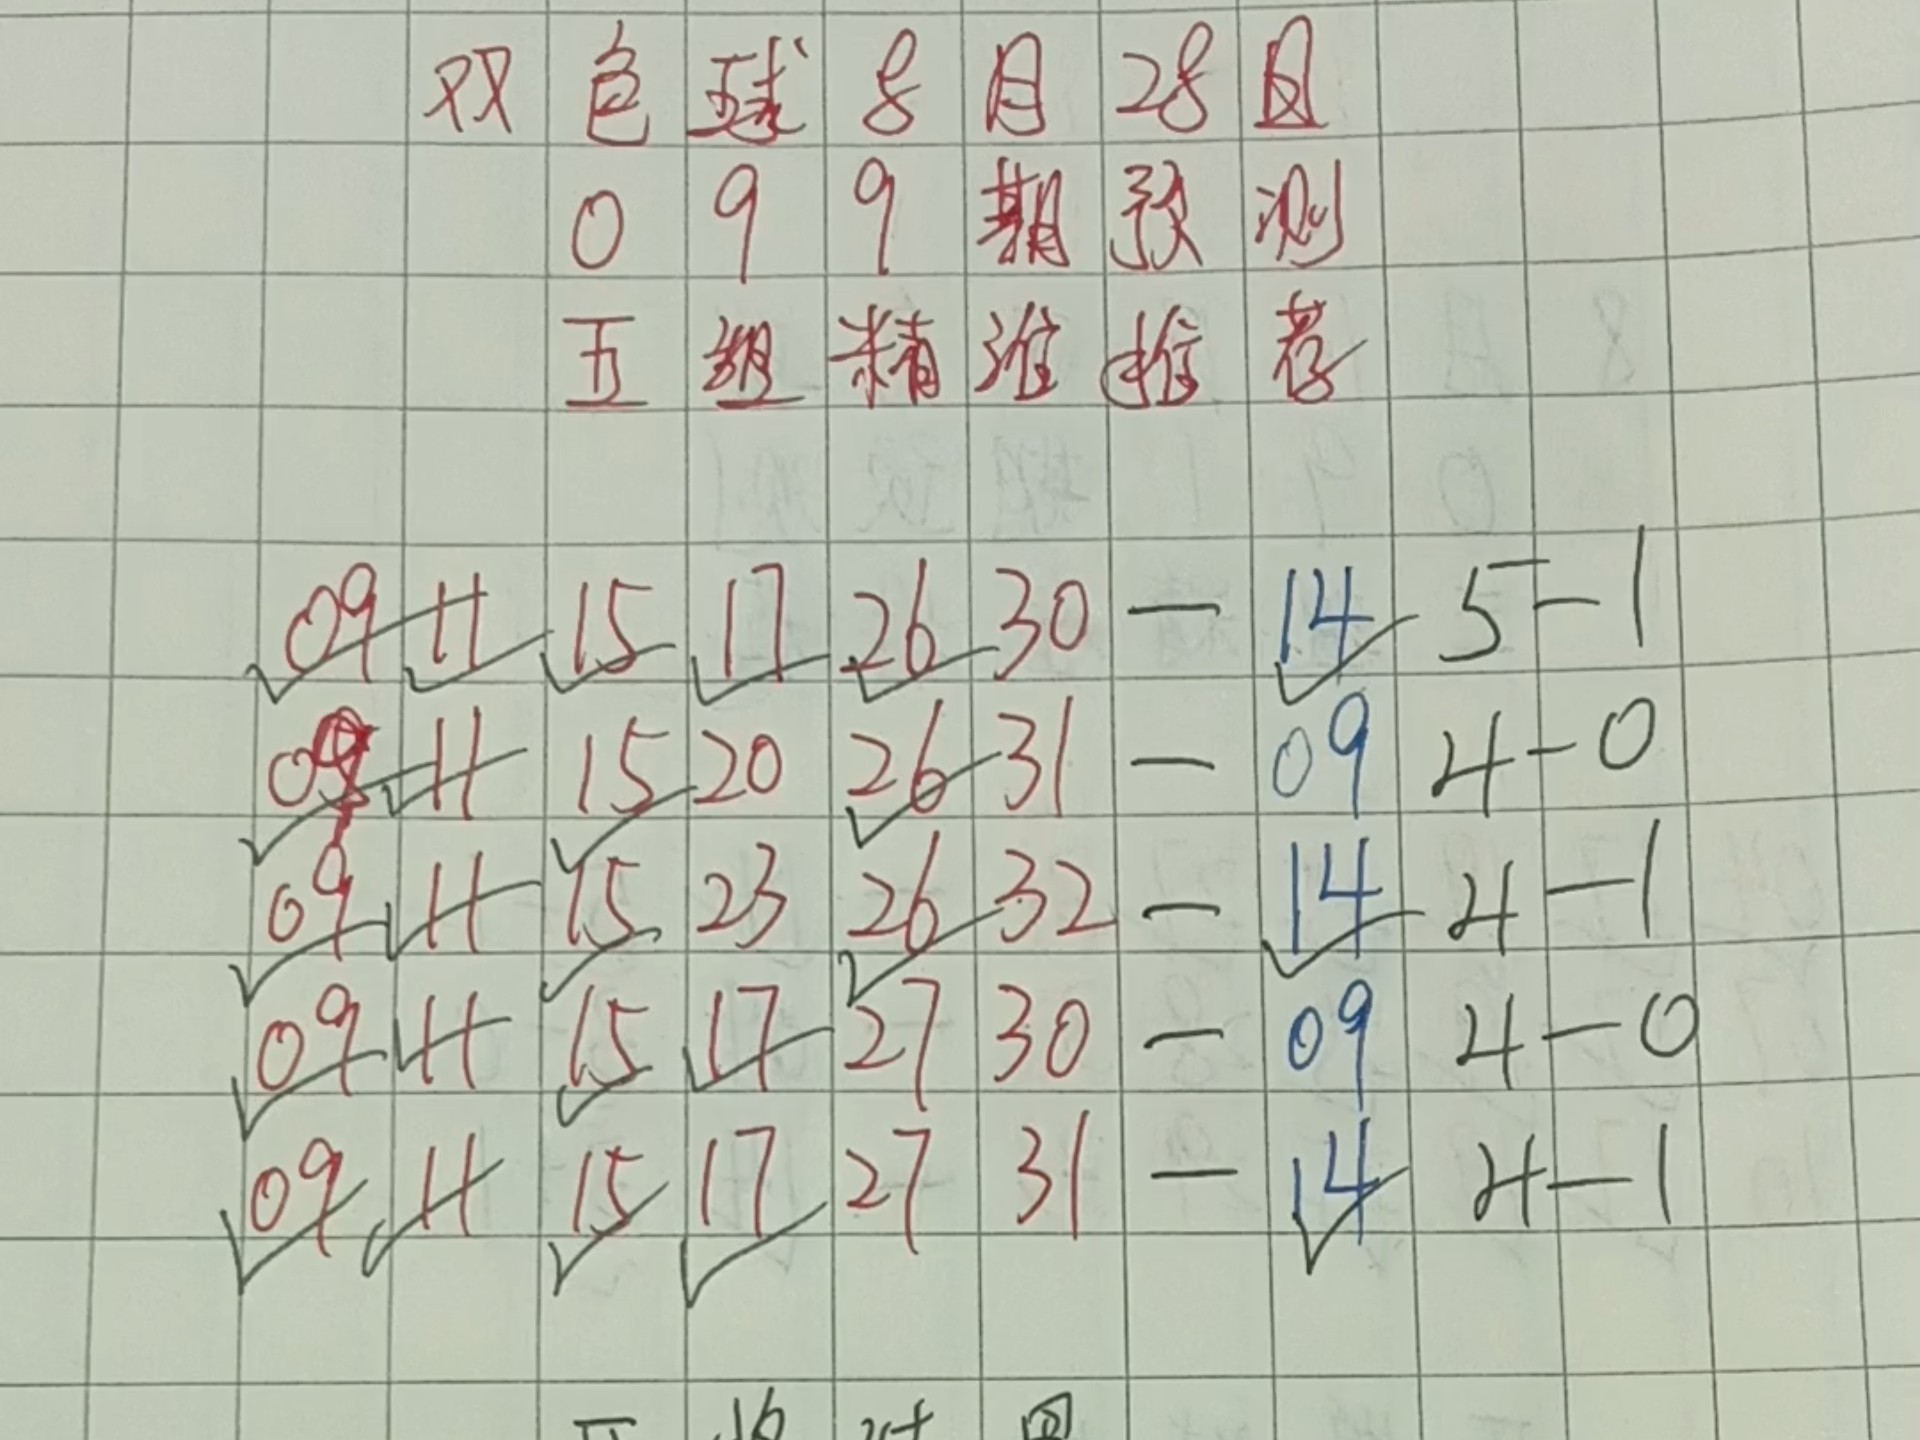 双色球8月28日
099期预测
五组精准推荐
09 11 15 17 26 30 — 14 5-1
09 11 15 20 26 31 — 09 4-0
09 11 15 23 26 32 — 14 4-1
09 11 15 17 27 30 — 09 4-0
09 11 15 17 27 31 — 14 4-1